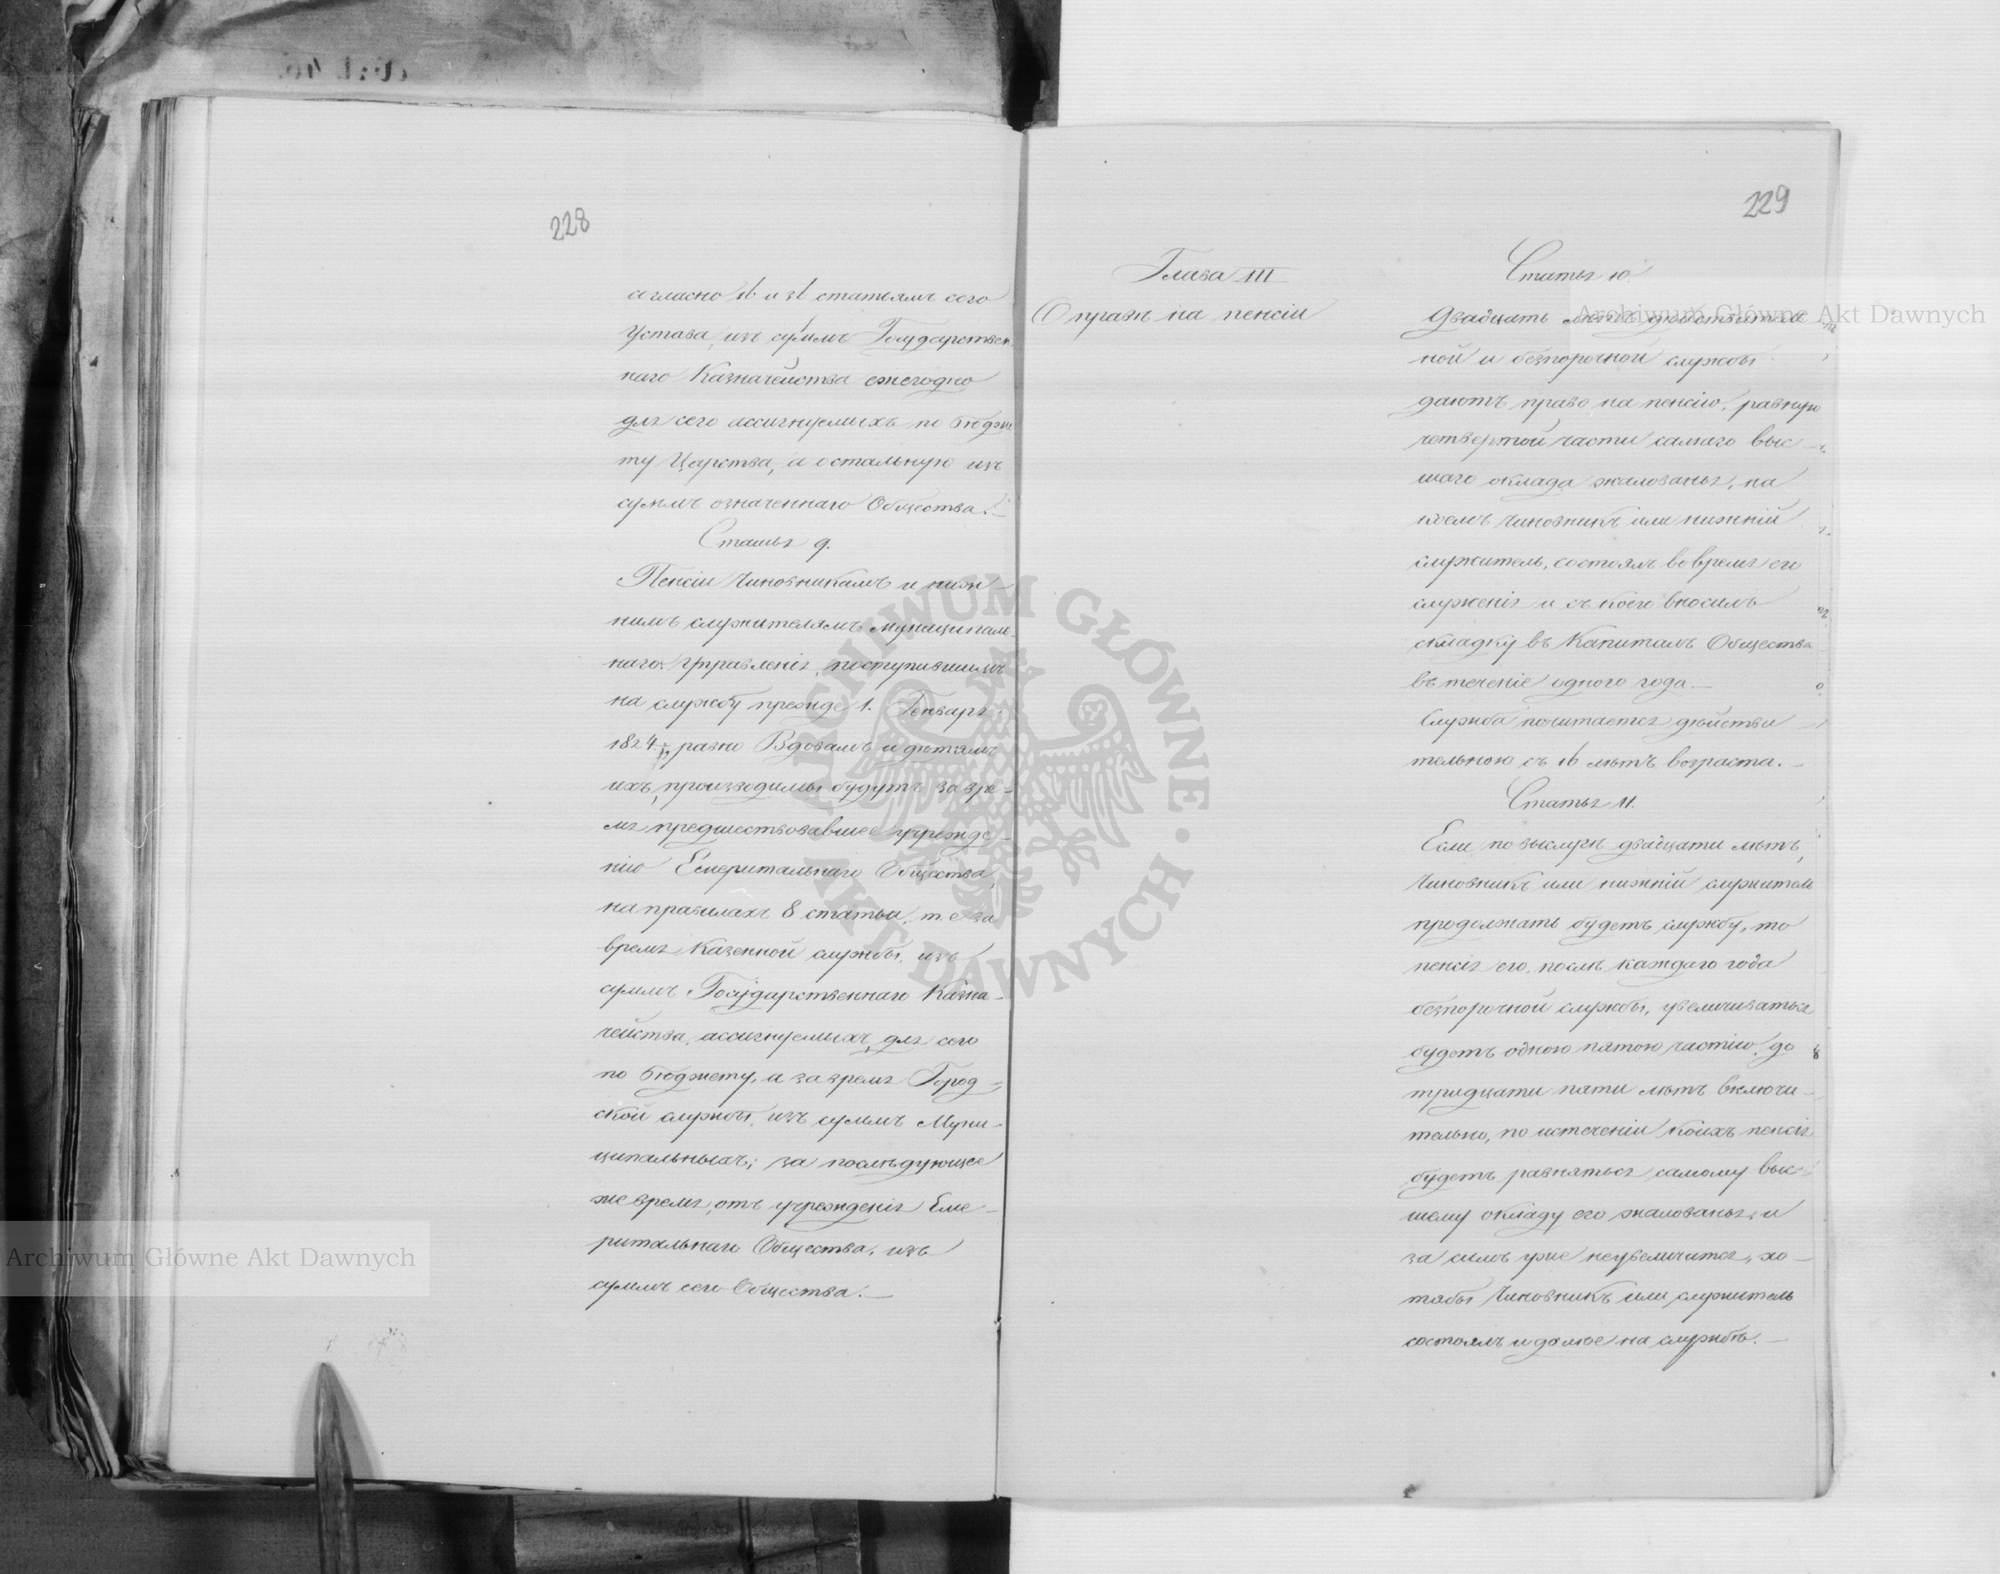 228
согласно 16 и 31 статьямъ сего
Устава, изъ суммъ Государствен
наго Казначейства ежегодно
для сего ассигнуемыхъ по бюдже
ту Царства, а остальную изъ
суммъ означеннаго Общества.—
Статья 9.
Пенсіи Чиновникамъ и ниж—
нимъ служителямъ Муниципаль—
наго Управленія, поступившимъ
на службу прежде 1. Генваря
1824 г., равно Вдовамъ и дѣтямъ
ихъ, производимы будутъ за вре—
мя предшествовавшее учрежде—
нію Емеритальнаго Общества,
на правилахъ 8 статьи, т. е. за
время Казенной службы, изъ
суммъ Государственнаго Казна—
чейства, ассигнуемыхъ для сего
по бюджету, а за время Город—
ской службы, изъ суммъ Муни—
ципальныхъ; за послѣдующее
же время, отъ учрежденія Еме—
ритальнаго Общества, изъ
суммъ сего Общества.—
229
Глава III
О правѣ на пенсіи
Статья 10.
Двадцать лѣтъ дѣйствитель
ной и безпорочной службы
даютъ право на пенсію, равную
четвертой части самаго выс—
шаго оклада жалованья, на
коемъ Чиновникъ или нижній
служитель, состоялъ во время его
служенія и съ коего вносилъ
складку въ Капиталъ Общества
въ теченіе одного года.—
Служба почитается дѣйстви—
тельною съ 16 лѣтъ возраста.—
Статья 11.
Если по выслугѣ двадцати лѣтъ,
Чиновникъ или нижній служитель
продолжать будетъ службу, то
пенсія его, послѣ каждаго года
безпорочной службы, увеличиваться
будетъ одною пятою частію, до
тридцати пяти лѣтъ включи—
тельно, по истеченіи коихъ пенсія
будетъ равняться самому выс—
шему окладу его жалованья, и
за симъ уже неувеличится, хо—
тябы Чиновникъ или служитель
состоялъ и долѣе на службѣ.—
Archiwum Główne Akt Dawnych
Archiwum Główne Akt Dawnych
ARCHIWUM GŁÓWNE · AKT DAWNYCH ·